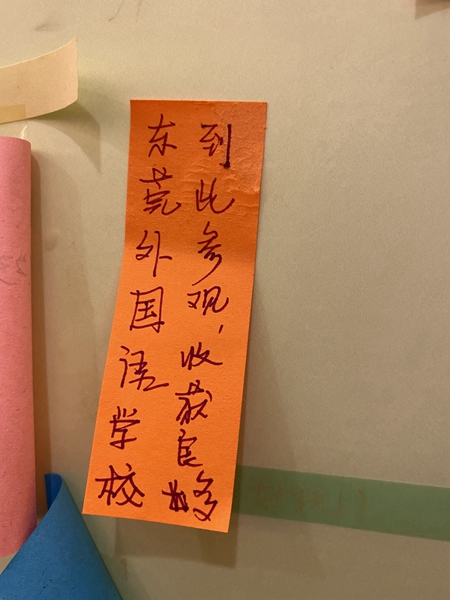 到此参观，收获良多
东莞外国语学校